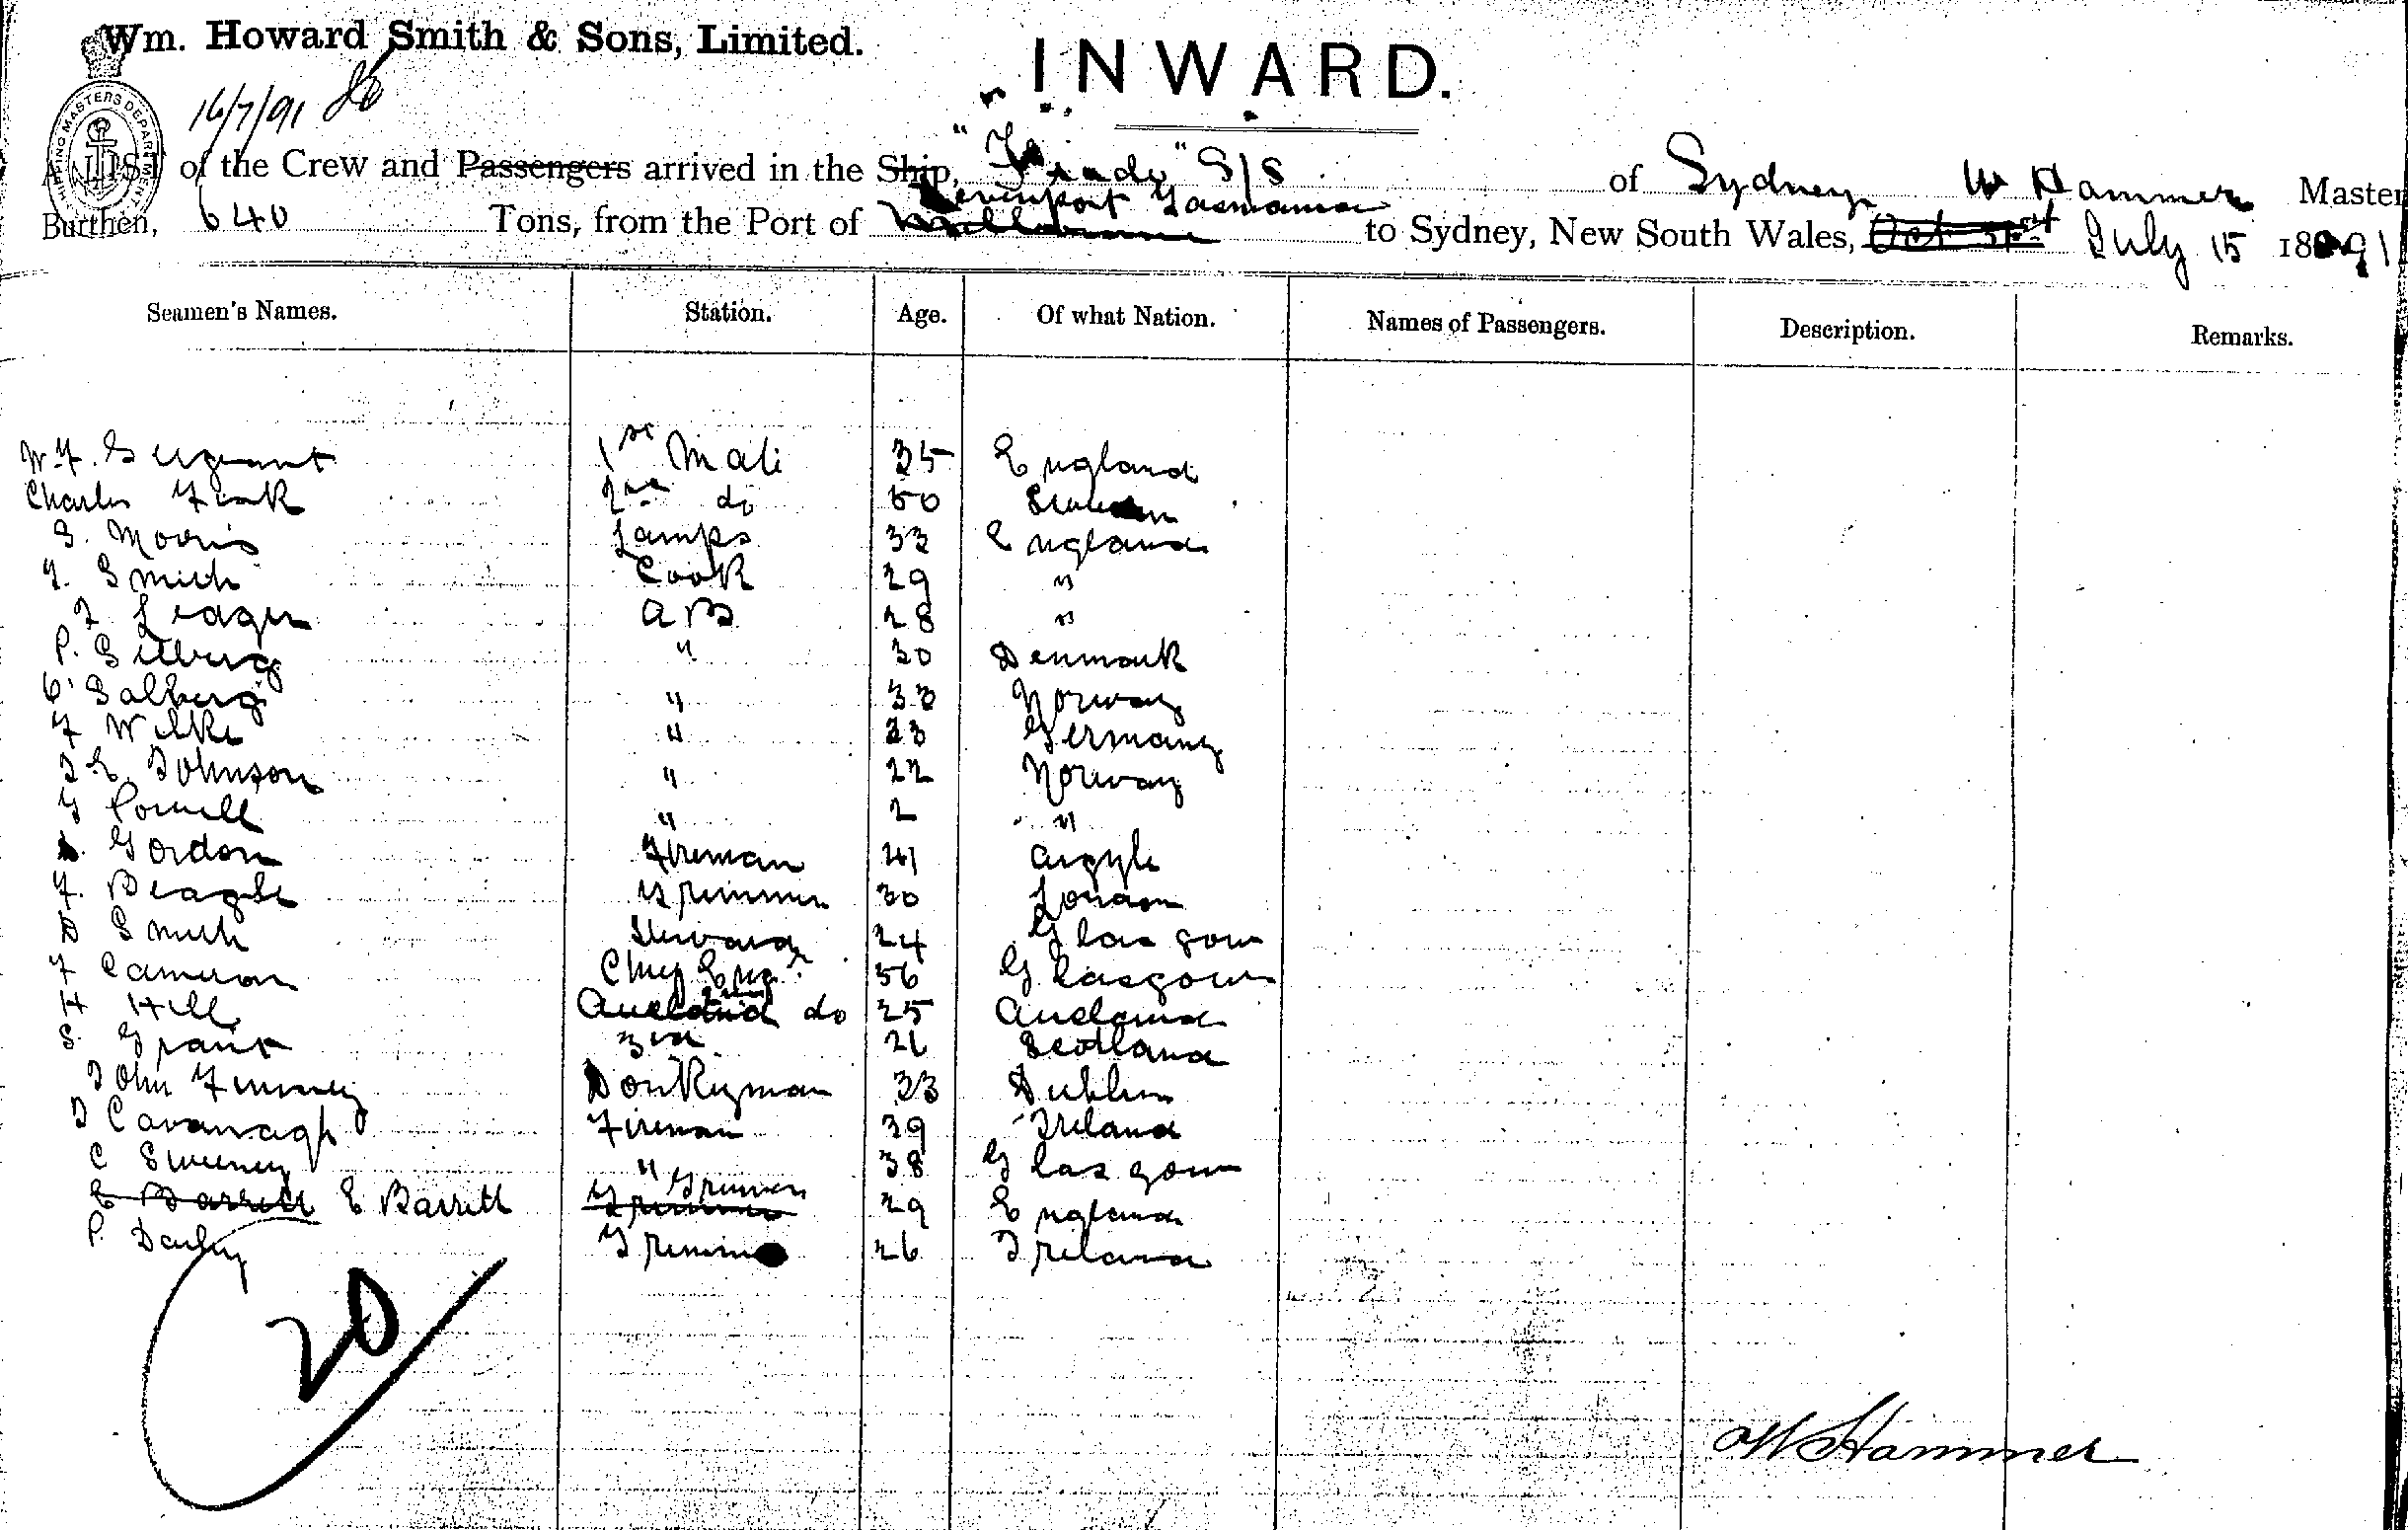 Wm. Howard Smith & Sons, Limited.
INWARD.
16/7/91
SHIPPING MASTERS DEPARTMENT
A LIST of the Crew and Passengers arrived in the Ship, S/S of Sydney W Hammer Master
Devenport Tasmania
Burthen, 640 Tons, from the Port of Melbourne to Sydney, New South Wales, Oct 31st July 15 1891
Seamen's Names. Station. Age. Of what Nation. Names of Passengers. Description. Remarks.
1st Mate 35 England
Charles Fink 2nd do 50
S. Morris Lamps 33 England
Smith Cook 29 "
Ledger A B 28 "
P. " 30 Denmark
C. Salberg " 33 Norway
F Wilke " 23 Germany
J. E. Johnson " 22 Norway
G Powell " 2 "
Gordon Fireman 41 Argyle
F. Beagle Trimmer 30 London
D Smith Steward 24 Glasgow
F Cameron Chief Engr 56 Glasgow
H Hill 2nd do 25 Auckland
S. Grant 3rd 26 Scotland
John Finney Donkeyman 33 Dublin
J Cavanagh Fireman 39 Ireland
C Sweeney " 38 Glasgow
E Barrett E Barrett Trimmer Trimmer 29 England
P. Darby Trimmer 26 Ireland
20
W Hammer